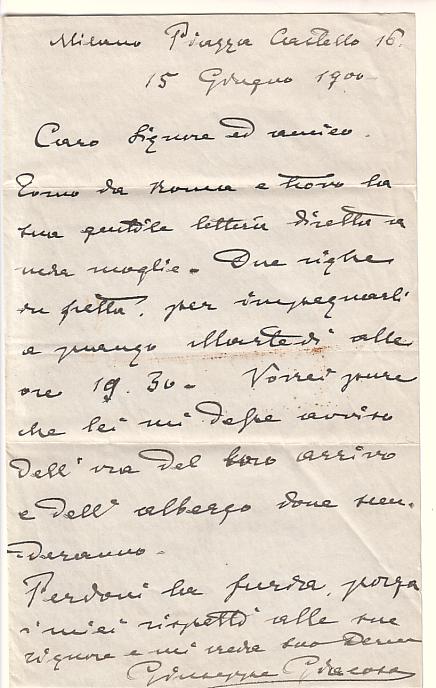 Milano Piazza Castello 16.
15 Giugno 1900
Caro Signore ed amico.
Torno da Roma e trovo la
sua gentile lettera diretta a
mia moglie. Due righe
in fretta, per impegnarli
a pranzo Martedì alle
ore 19.30 - Vorrei pure
che lei mi desse avviso
dell'ora del loro arrivo
e dell'albergo dove scen-
deranno.
Perdoni la furia, porga
i miei rispetti alle sue
signore e mi creda suo
Giuseppe Giacosa